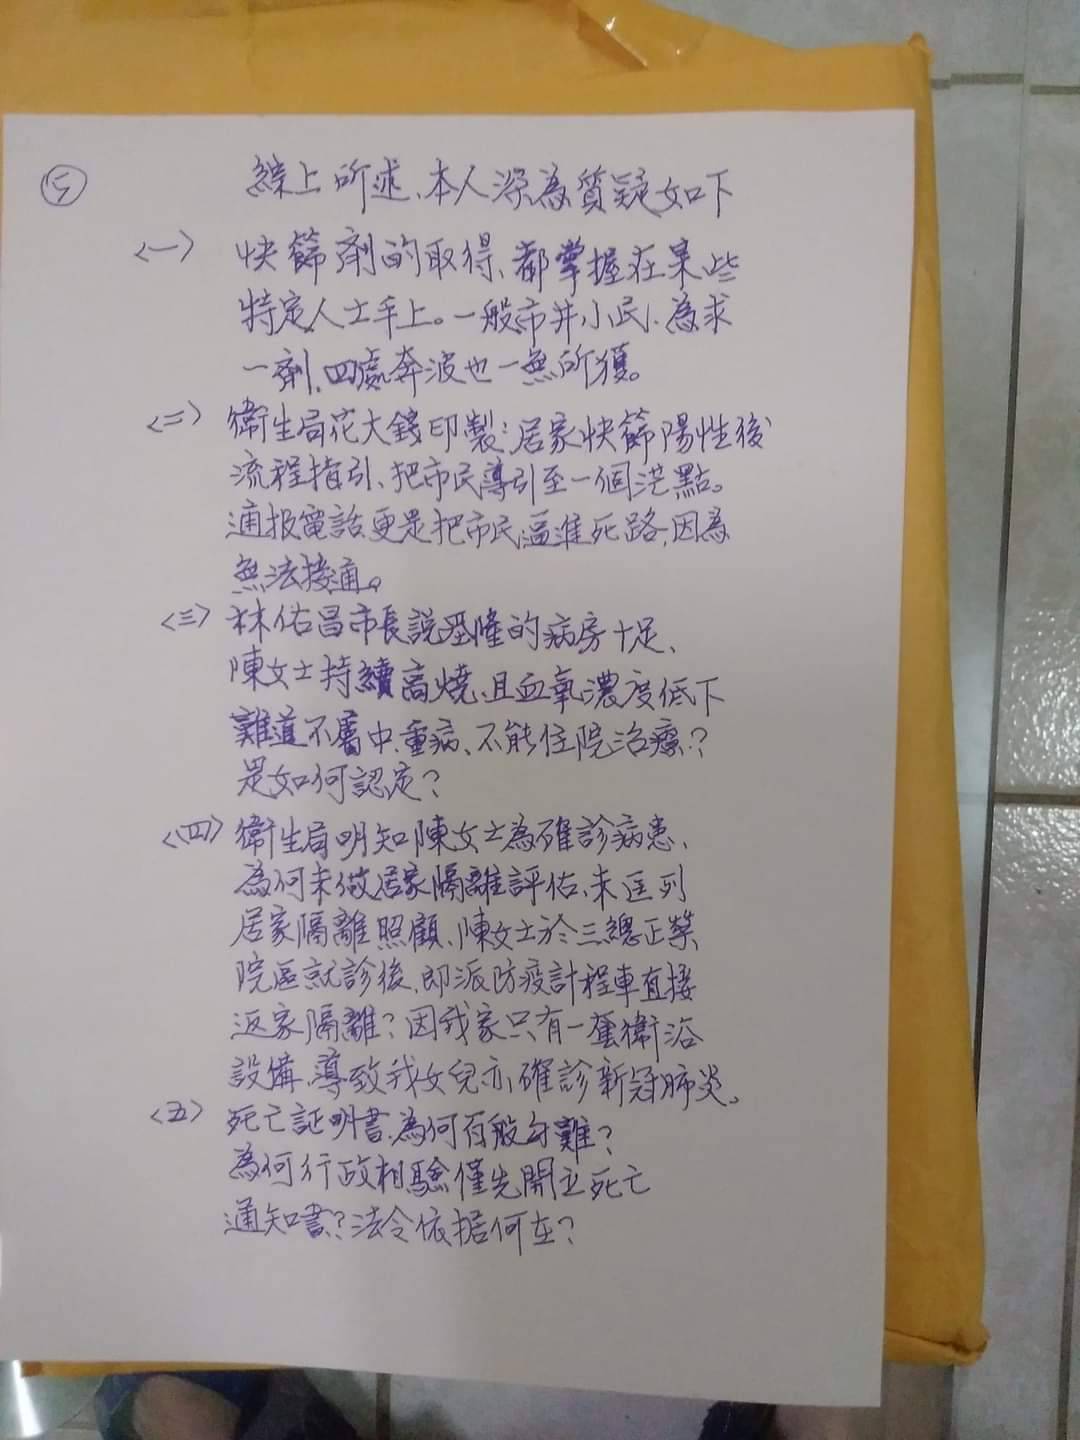 ⑤
綜上所述、本人深為質疑如下
<一> 快篩劑的取得、都掌握在某些
特定人士手上。一般市井小民、為求
一劑、四處奔波也一無所獲。
<二> 衛生局花大錢印製:居家快篩陽性後
流程指引、把市民導引至一個茫點。
通报電話、更是把市民逼進死路、因為
無法接通。
<三> 林佑昌市長說基隆的病房十足、
陳女士持續高燒、且血氧濃度低下
難道不屬中、重病、不能住院治療?
是如何認定?
<四> 衛生局明知陳女士為確診病患、
為何未做居家隔離評估、未匡列
居家隔離照顧、陳女士於三總正榮
院區就診後、即派防疫計程車直接
返家隔離?因我家只有一套衛浴
設備、導致我女兒亦確診新冠肺炎。
<五> 死亡証明書、為何百般刁難?
為何行政相驗僅先開立死亡
通知書?法令依据何在?